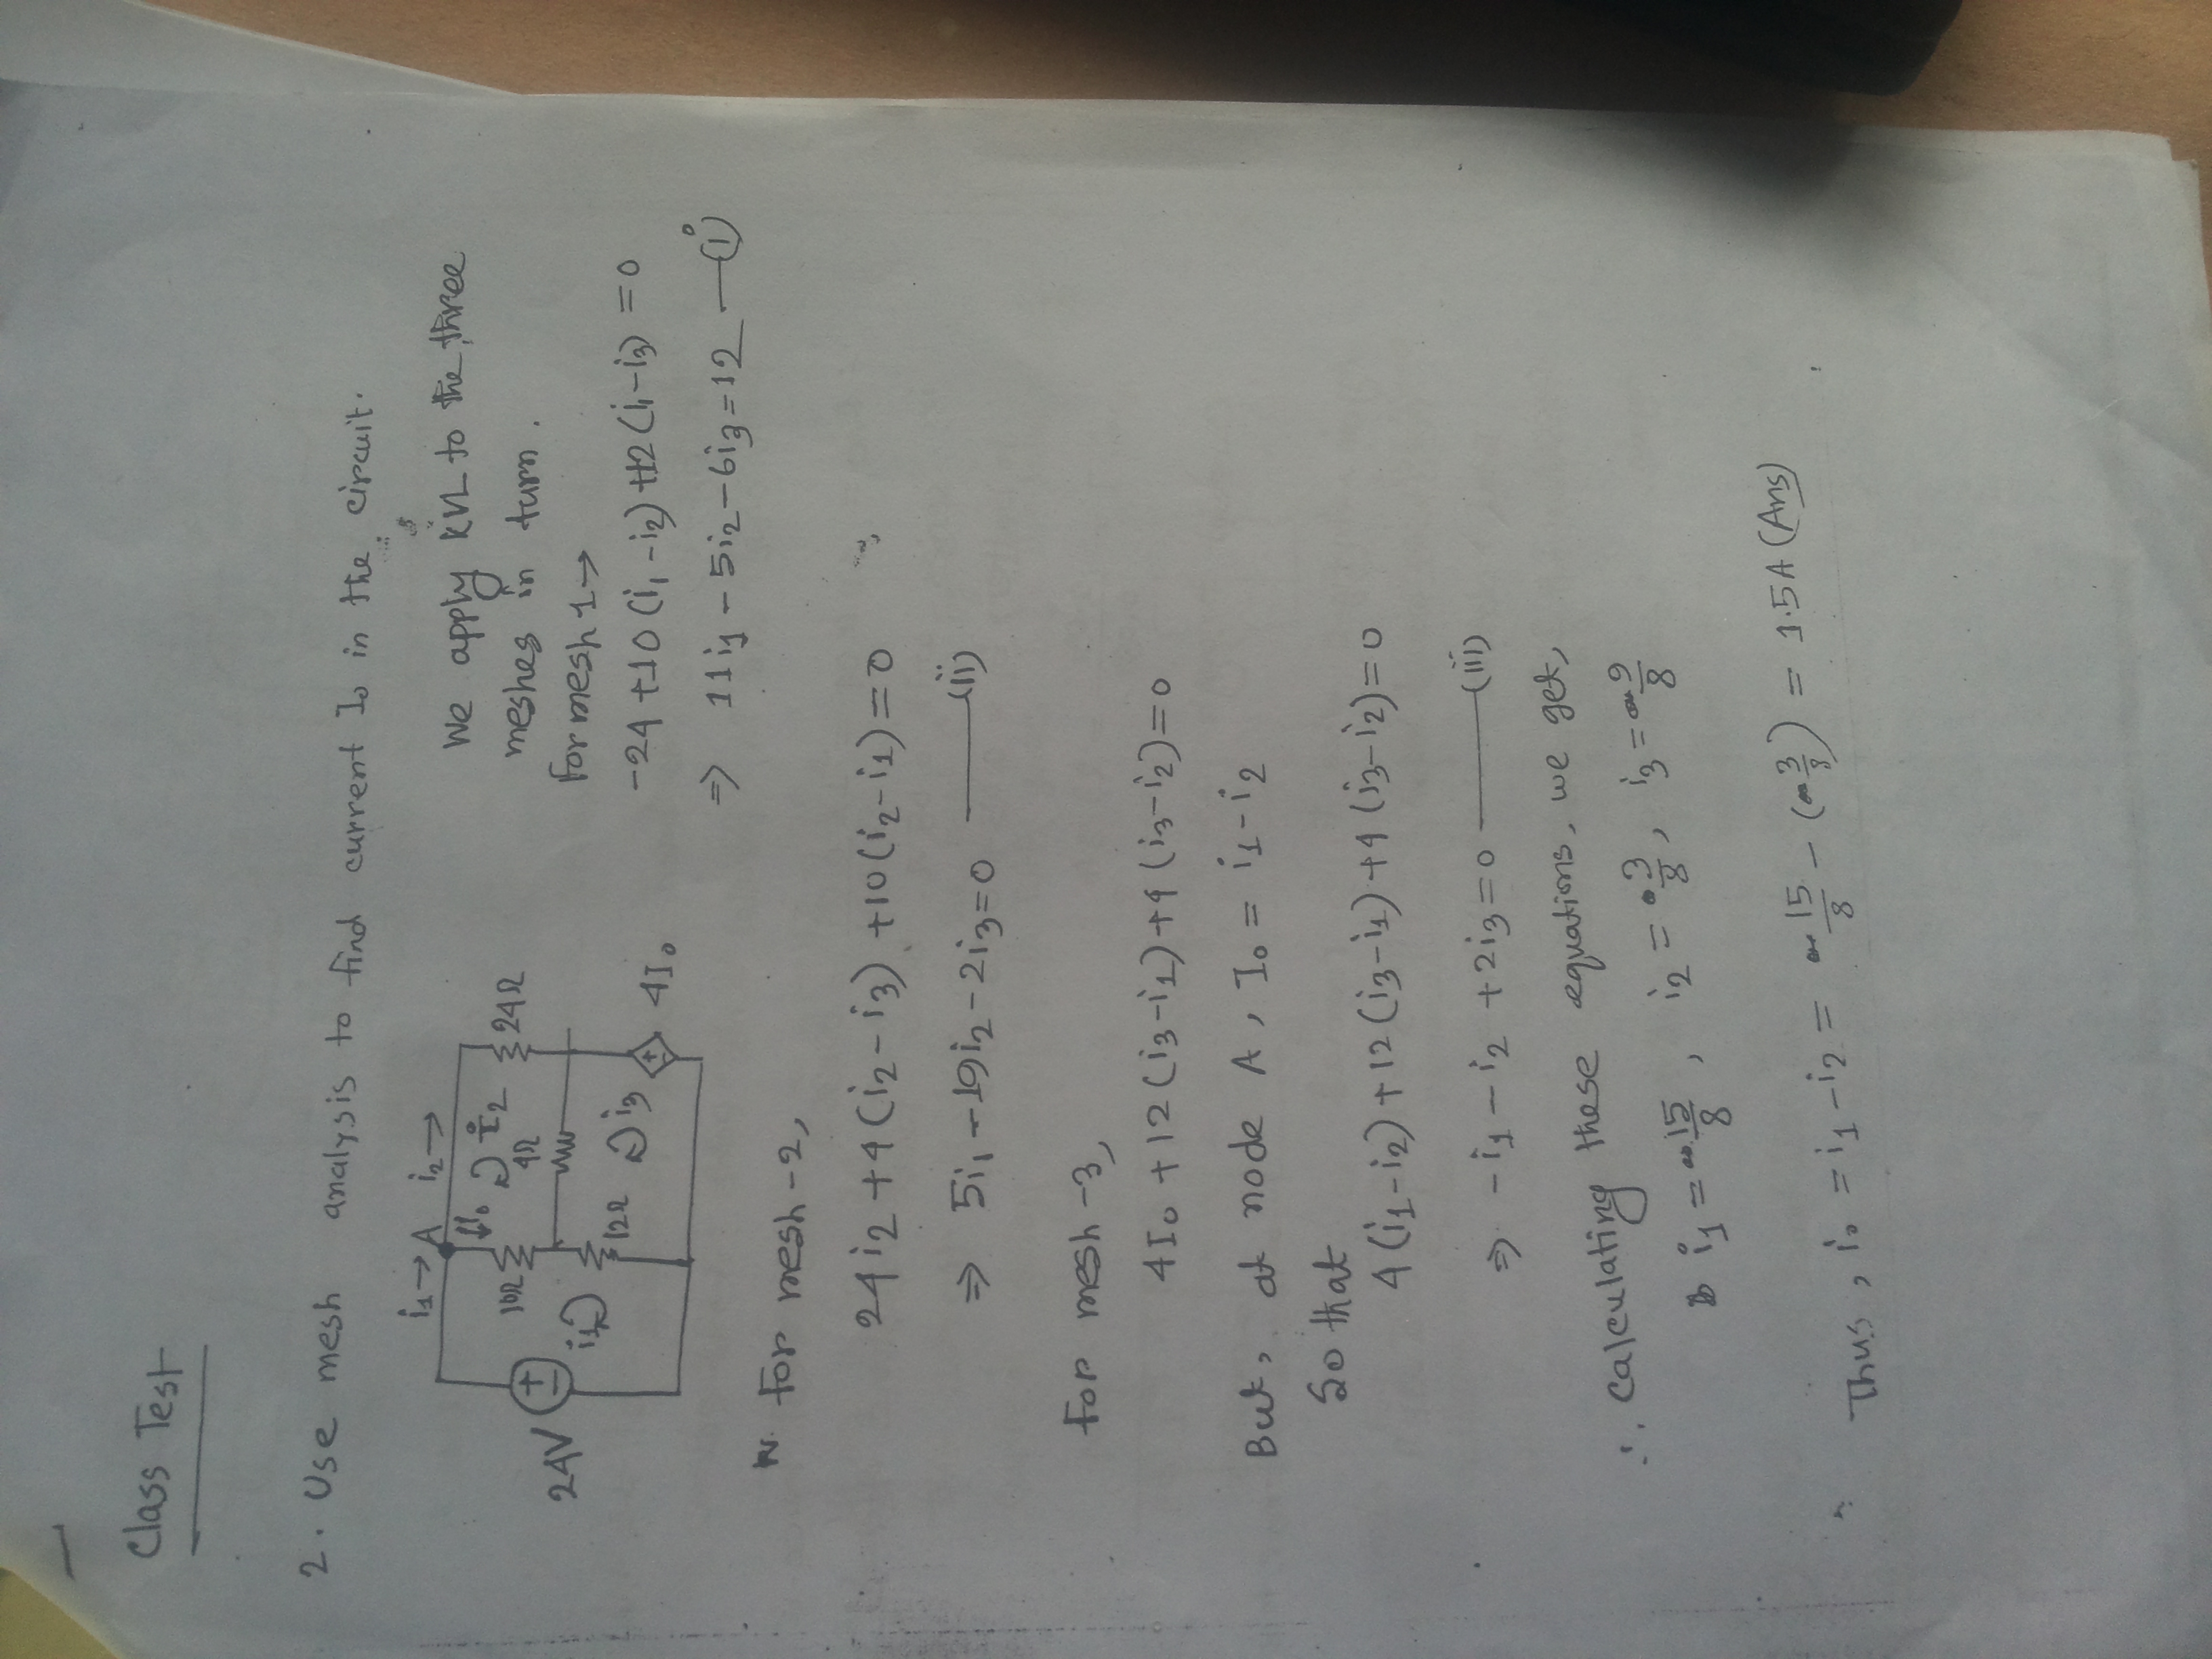 Class Test
2. Use mesh analysis to find current I₀ in the circuit.
i₁→ A i₂→
↓I₀ i₂
10Ω 4Ω 24Ω
24V i₁
12Ω i₃
4I₀
We apply KVL to the three
meshes in turn.
For mesh 1→
-24 +10 (i₁ -i₂) +12 (i₁-i₃) = 0
⇒ 11i₁ - 5i₂ - 6i₃ = 12 —(i)
For mesh -2,
24i₂ +4(i₂-i₃) +10(i₂-i₁)=0
⇒ 5i₁ -19i₂ -2i₃=0 —(ii)
For mesh -3,
4I₀ +12(i₃-i₁)+4(i₃-i₂)=0
But, at node A, I₀ = i₁-i₂
So that
4(i₁-i₂)+12(i₃-i₁)+4(i₃-i₂)=0
⇒ -i₁ - i₂ +2i₃=0 —(iii)
∴ Calculating these equations, we get,
i₁ = 15/8, i₂ = 3/8, i₃ = 9/8
Thus, i₀ = i₁-i₂ = 15/8 - (3/8) = 1.5A (Ans)